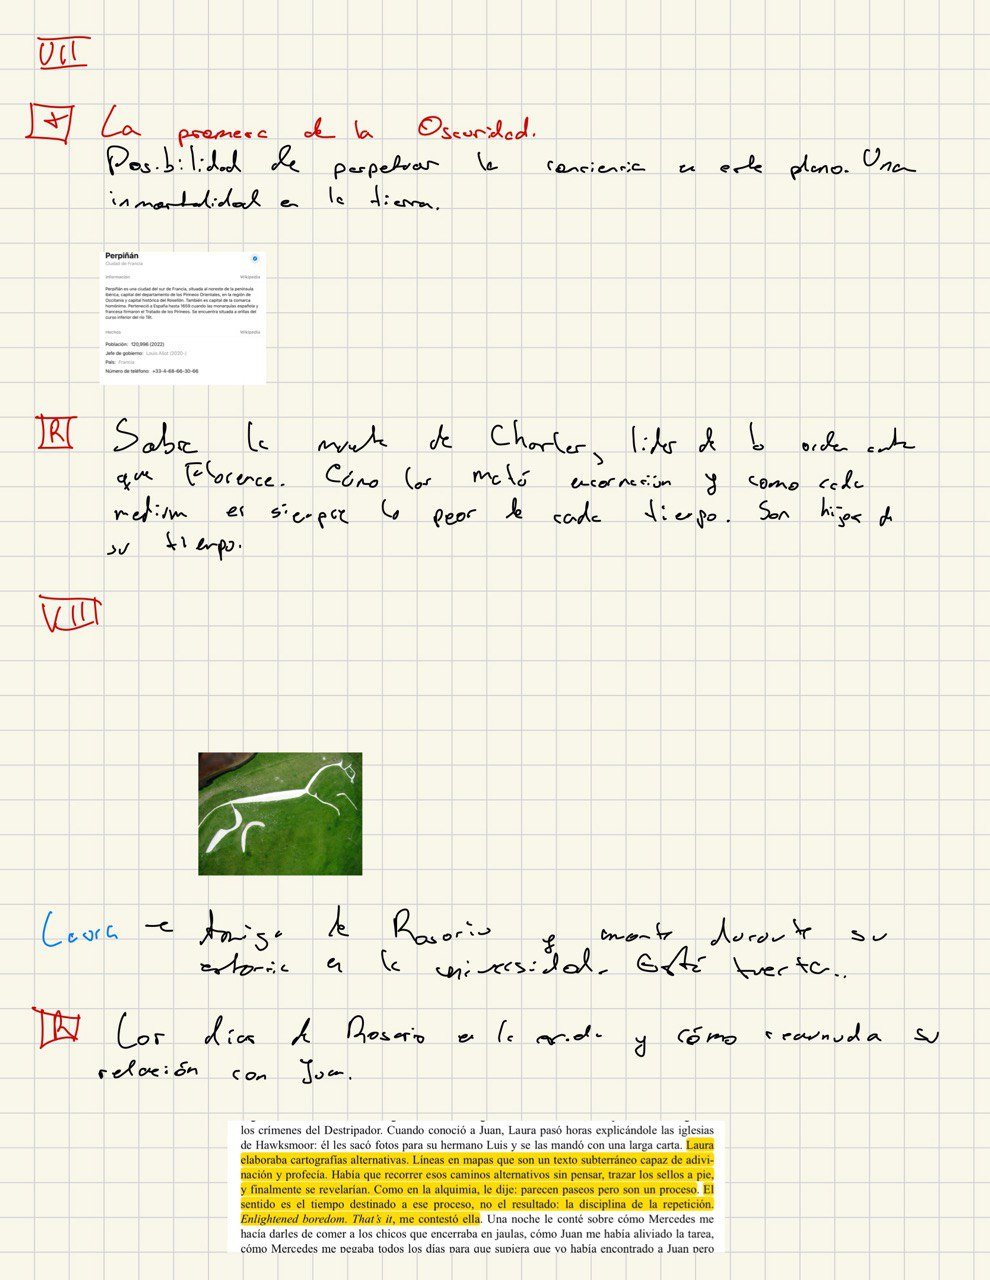 VII
+ La promesa de la Oscuridad.
Posibilidad de perpetuar la conciencia en este plano. Una
inmortalidad en la tierra.
Perpiñán
Ciudad de Francia
Información Wikipedia
Perpiñán es una ciudad del sur de Francia, situada al noreste de la península
Ibérica, capital del departamento de los Pirineos Orientales, en la región de
Occitania y capital histórica del Rosellón. También es capital de la comarca
homónima. Perteneció a España hasta 1659 cuando las monarquías española y
francesa firmaron el Tratado de los Pirineos. Se encuentra situada a orillas del
curso inferior del río Têt.
Hechos Wikipedia
Población: 120,996 (2022)
Jefe de gobierno: Louis Aliot (2020-)
País: Francia
Número de teléfono: +33-4-68-66-30-66
R Sobre la muerte de Charles, líder de la orden antes
que Florence. Cómo los mató encarnación y como cada
medium es siempre lo peor de cada tiempo. Son hijos de
su tiempo.
VIII
Laura Amiga de Rosario y amante durante su
estancia en la universidad. Está tuerta..
R Los días de Rosario en la orden y cómo reanuda su
relación con Juan.
los crímenes del Destripador. Cuando conoció a Juan, Laura pasó horas explicándole las iglesias
de Hawksmoor: él les sacó fotos para su hermano Luis y se las mandó con una larga carta. Laura
elaboraba cartografías alternativas. Líneas en mapas que son un texto subterráneo capaz de adivi-
nación y profecía. Había que recorrer esos caminos alternativos sin pensar, trazar los sellos a pie,
y finalmente se revelarían. Como en la alquimia, le dije: parecen paseos pero son un proceso. El
sentido es el tiempo destinado a ese proceso, no el resultado: la disciplina de la repetición.
Enlightened boredom. That's it, me contestó ella. Una noche le conté sobre cómo Mercedes me
hacía darles de comer a los chicos que encerraba en jaulas, cómo Juan me había aliviado la tarea,
cómo Mercedes me pegaba todos los días para que supiera que yo había encontrado a Juan pero